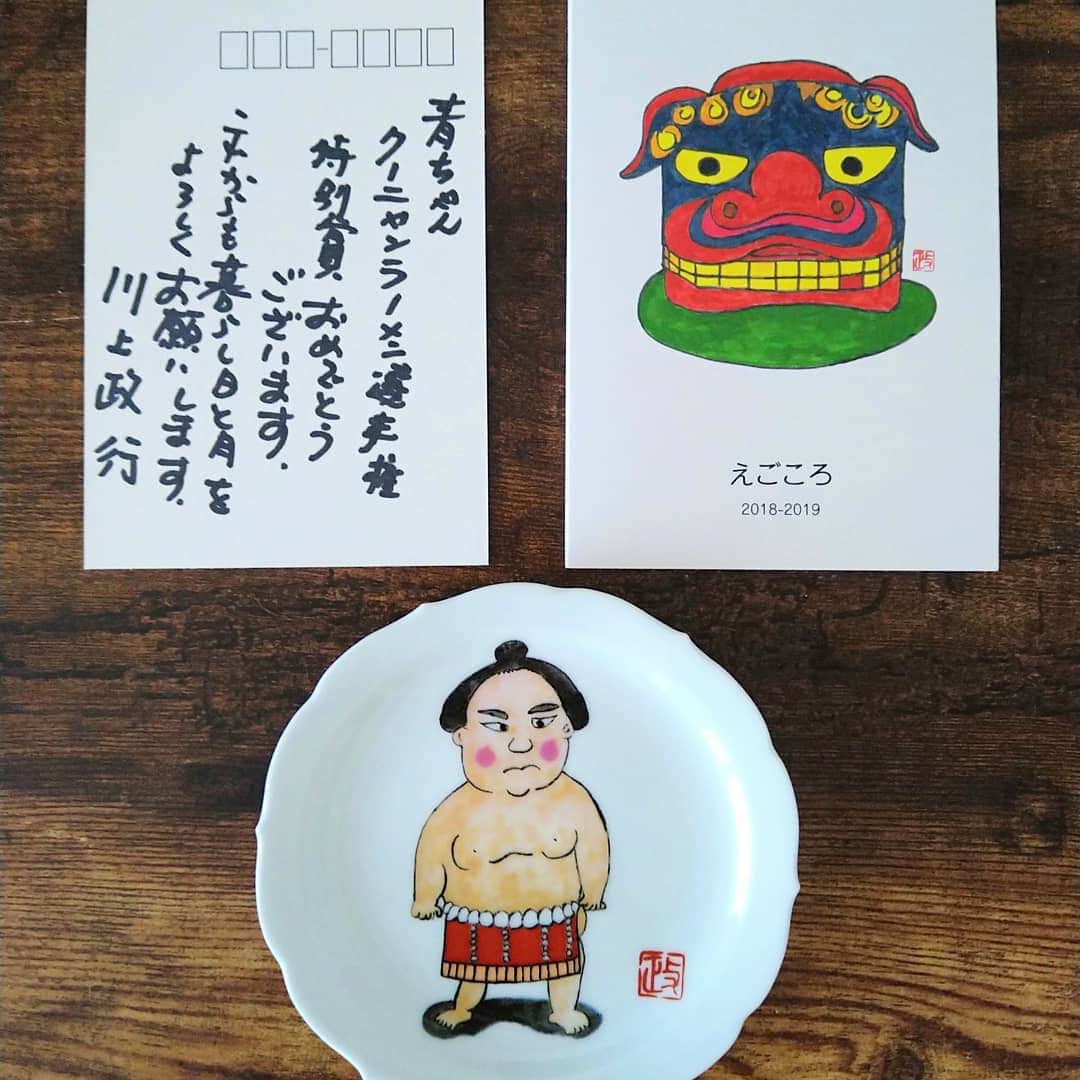 青ちゃん
クーニャンラーメン選手権
特別賞 おめでとう
ございます。
これからも暮らし日と月を
よろしくお願いします。
川上政行
政
えごころ
2018-2019
政